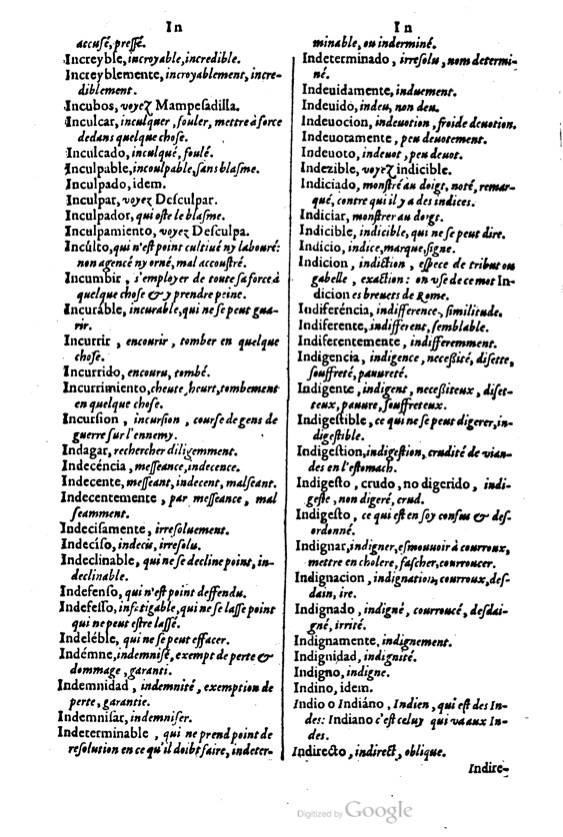 In
accuſé, preſſé.
Increyble, incroyable, incredible.
Increyblemente, incroyablement, incre-
diblement.
Incubos, voyez Mampeſadilla.
Inculcar, inculquer, fouler, mettre à force
dedans quelque choſe.
Inculcado, inculqué, foulé.
Inculpable, incoulpable, ſans blaſme.
Inculpado, idem.
Inculpar, voyez Deſculpar.
Inculpador, qui oſte le blaſme.
Inculpamiento, voyez Deſculpa.
Incúlto, qui n'eſt point cultiué ny labouré:
non agencé ny orné, mal accouſtré.
Incumbir, s'employer de toute ſa force à
quelque choſe & y prendre peine.
Incuráble, incurable, qui ne ſe peut gua-
rir.
Incurrir, encourir, tomber en quelque
choſe.
Incurrido, encouru, tombé.
Incurrimiento, cheute, heurt, tombement
en quelque choſe.
Incurſion, incurſion, courſe de gens de
guerre ſur l'ennemy.
Indagar, rechercher diligemment.
Indecéncia, meſſeance, indecence.
Indecente, meſſeant, indecent, malſeant.
Indecentemente, par meſſeance, mal
ſeamment.
Indeciſamente, irreſoluement.
Indecíſo, indecis, irreſolu.
Indeclinable, qui ne ſe decline point, in-
declinable.
Indefenſo, qui n'eſt point deffendu.
Indefeſſo, infatigable, qui ne ſe laſſe point
qui ne peut eſtre laſſé.
Indeléble, qui ne ſe peut effacer.
Indémne, indemniſé, exempt de perte &
dommage, garanti.
Indemnidad, indemnité, exemption de
perte, garantie.
Indemniſar, indemniſer.
Indeterminable, qui ne prend point de
reſolution en ce qu'il doibt faire, indeter-
In
minable, ou inderminé.
Indeterminado, irreſolu, non determi-
né.
Indeuidamente, induement.
Indeuido, indeu, non deu.
Indeuocion, indeuotion, froide deuotion.
Indeuotamente, peu deuotement.
Indeuoto, indeuot, peu deuot.
Indezible, voyez indicible.
Indiciado, monſtré au doigt, noté, remar-
qué, contre qui il y a des indices.
Indiciar, monſtrer au doigt.
Indicible, indicible, qui ne ſe peut dire.
Indicio, indice, marque, ſigne.
Indicion, indiction, eſpece de tribut ou
gabelle, exaction: on vſe de ce mot In-
dicion es breuets de Rome.
Indiferéncia, indifference, ſimilitude.
Indiferente, indifferent, ſemblable.
Indiferentemente, indifferemment.
Indigencia, indigence, neceßité, diſette,
ſouffreté, pauureté.
Indigente, indigent, neceßiteux, diſet-
teux, pauure, ſouffreteux.
Indigeſtible, ce qui ne ſe peut digerer, in-
digeſtible.
Indigeſtion, indigeſtion, crudité de vian-
des en l'eſtomach.
Indigeſto, crudo, no digerido, indi-
geſte, non digeré, crud.
Indigeſto, ce qui eſt en ſoy confus & deſ-
ordonné.
Indignar, indigner, eſmouuoir à courroux,
mettre en cholere, faſcher, courroucer.
Indignacion, indignation, courroux, deſ-
dain, ire.
Indignado, indigné, courroucé, deſdai-
gné, irrité.
Indignamente, indignement.
Indignidad, indignité.
Indigno, indigne.
Indino, idem.
Indio o Indiáno, Indien, qui eſt des In-
des: Indiano c'eſt celuy qui va aux In-
des.
Indirecto, indirect, oblique.
Indire-
Digitized by Google